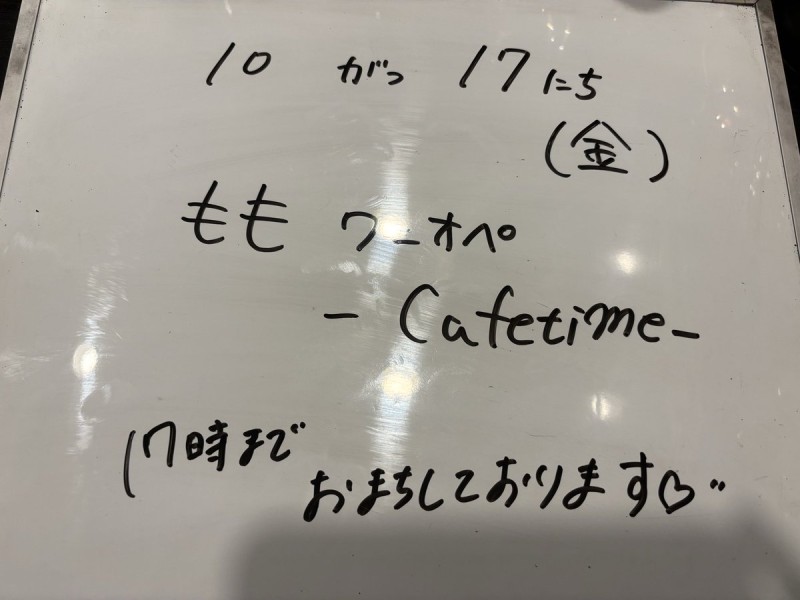 10 がつ 17にち
(金)
もも ワーオペ
- Cafetime -
17時まで
おまちしております♡"